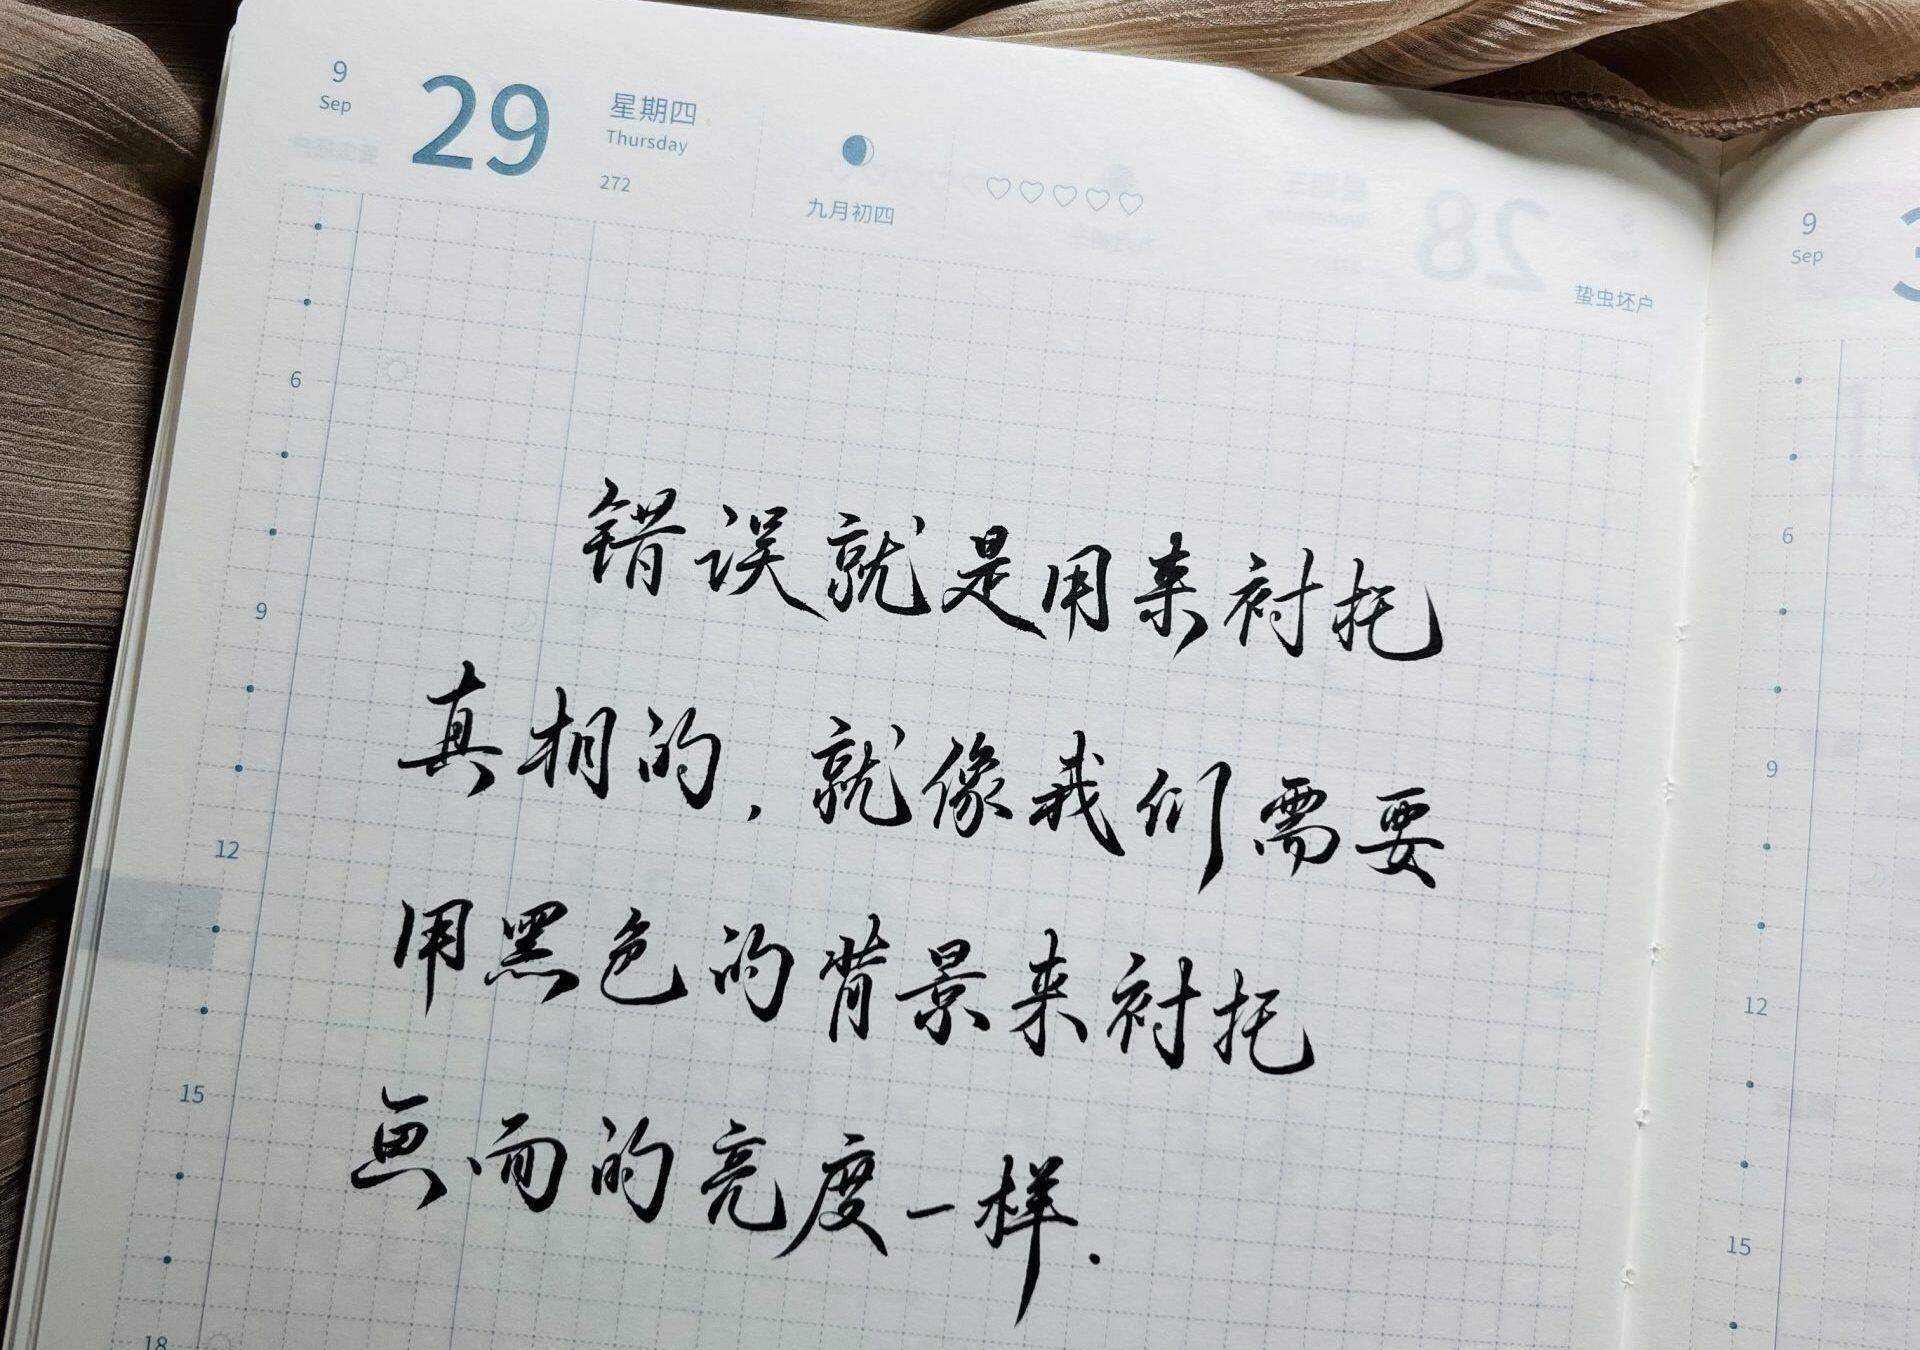 9
Sep
29
星期四
Thursday
272
九月初四
蛰虫坯户
6
9
12
15
18
错误就是用来衬托
真相的，就像我们需要
用黑色的背景来衬托
画面的亮度一样.
9
Sep
6
9
12
15